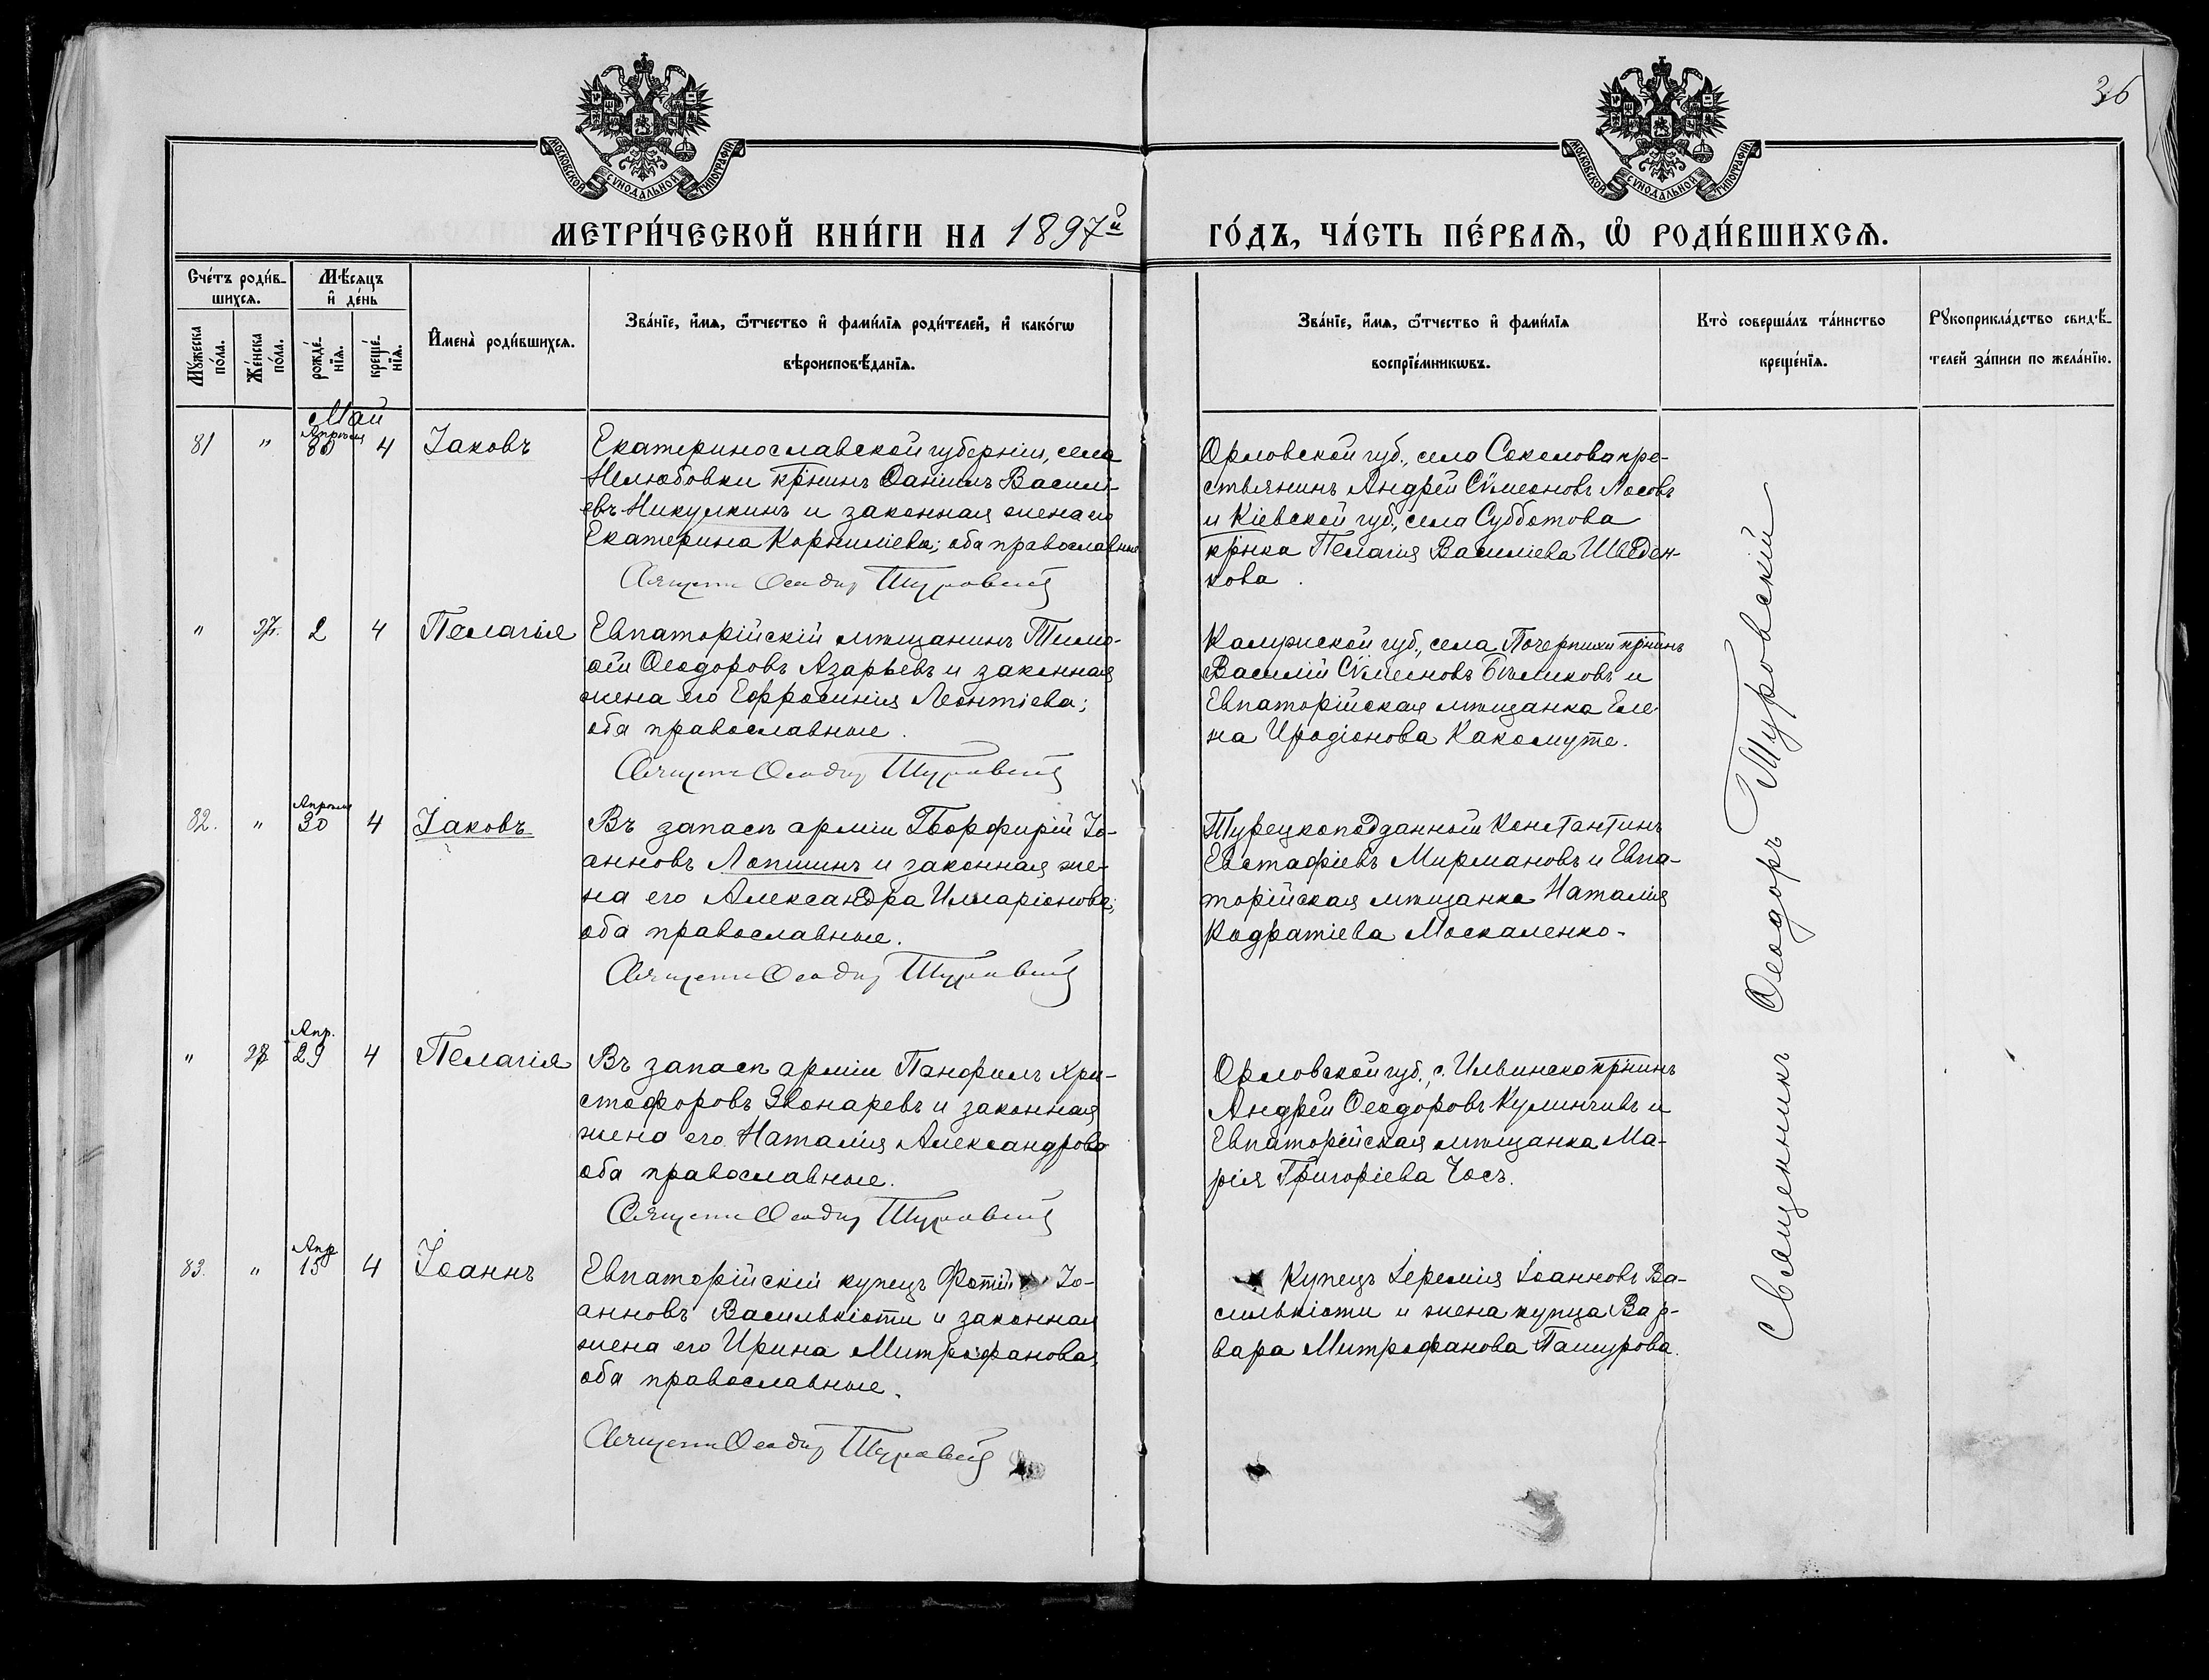 36
МОСКОВСКОЙ СѴНОДАЛЬНОЙ ТИПОГРАФІИ
МОСКОВСКОЙ СѴНОДАЛЬНОЙ ТИПОГРАФІИ
МЕТРИ́ЧЕСКОЙ КНИ́ГИ НА 1897й
ГО́ДЪ, ЧА́СТЬ ПЕ́РВАѦ, Ѽ РОДИ́ВШИХСѦ.
Сче́тъ роди́в-
шихсѧ.
Мꙋ́жеска по́ла.
Же́нска по́ла.
Мѣ́сѧцъ
и҆ де́нь
рожде́-нїѧ.
креще́-нїѧ.
И҆мена̀ роди́вшихсѧ.
Зва́нїе, и҆́мѧ, ѻ҆́тчество и҆ фами́лїѧ роди́телей, и҆ како́гѡ
вѣроисповѣ́данїѧ.
Зва́нїе, и҆́мѧ, ѻ҆́тчество и҆ фами́лїѧ
воспрїе́мникѡвъ.
Кто̀ соверша́лъ та́инство
креще́нїѧ.
Рꙋкоприкла́дство свидѣ́-
телей за́писи по жела́нїю.
Май
81 " Апрѣля 30 4 Іаковъ
Екатеринославской губерніи, села
Нелюбовки кр̃нинъ Даніилъ Василі-
евъ Никулкинъ и законная жена его
Екатерина Корниліева; оба православные
Священ. Ѳеодоръ Туровскій
Орловской губ., села Соколова кре-
стьянинъ Андрей Сѵмеоновъ Лосовъ
и Кіевской губ., села Субботова
кр̃нка Пелагія Василіева Шведен-
кова.
" 37. 2 4 Пелагія
Евпаторійскій мѣщанинъ Тимо-
ѳей Ѳеодоровъ Азарьевъ и законная
жена его Ефросинія Леонтіева;
оба православные.
Священ. Ѳеодоръ Туровскій
Калужской губ., села кр̃нинъ
Василій Сѵмеоновъ Бѣликовъ и
Евпаторійская мѣщанка Еле-
на Иродіонова Какомуте.
82. " Апрѣля 30 4 Іаковъ
Въ запасѣ арміи Порфирій Іо-
анновъ Лопшинъ и законная же-
на его Александра Иларіонова;
оба православные.
Священ. Ѳеодоръ Туровскій
Турецкоподданный Константинъ
Евстафіевъ Мирмановъ и Евпа-
торійская мѣщанка Наталія
Кодратіева Москаленко.
" Апр. 29 4 Пелагія
Въ запасѣ арміи Панфилъ Хри-
стофоровъ Звонаревъ и законная
жена его Наталія Александрова
оба православные.
Священ. Ѳеодоръ Туровскій
Орловской губ., с. Ильинско кр̃нинъ
Андрей Ѳеодоровъ и
Евпаторійская мѣщанка Ма-
рія Григоріева Чосъ.
83. " Апр 15 4 Іоаннъ
Евпаторійскій купецъ Фотій Іо-
анновъ Василькіоти и законная
жена его Ирина Митрофанова,
оба православные.
Священ. Ѳеодоръ Туровскій
Купецъ Іеремія Іоанновъ Ва-
силькіоти и жена купца Вар-
вара Митрофанова Пашурова.
Священникъ Ѳеодоръ Туровскій